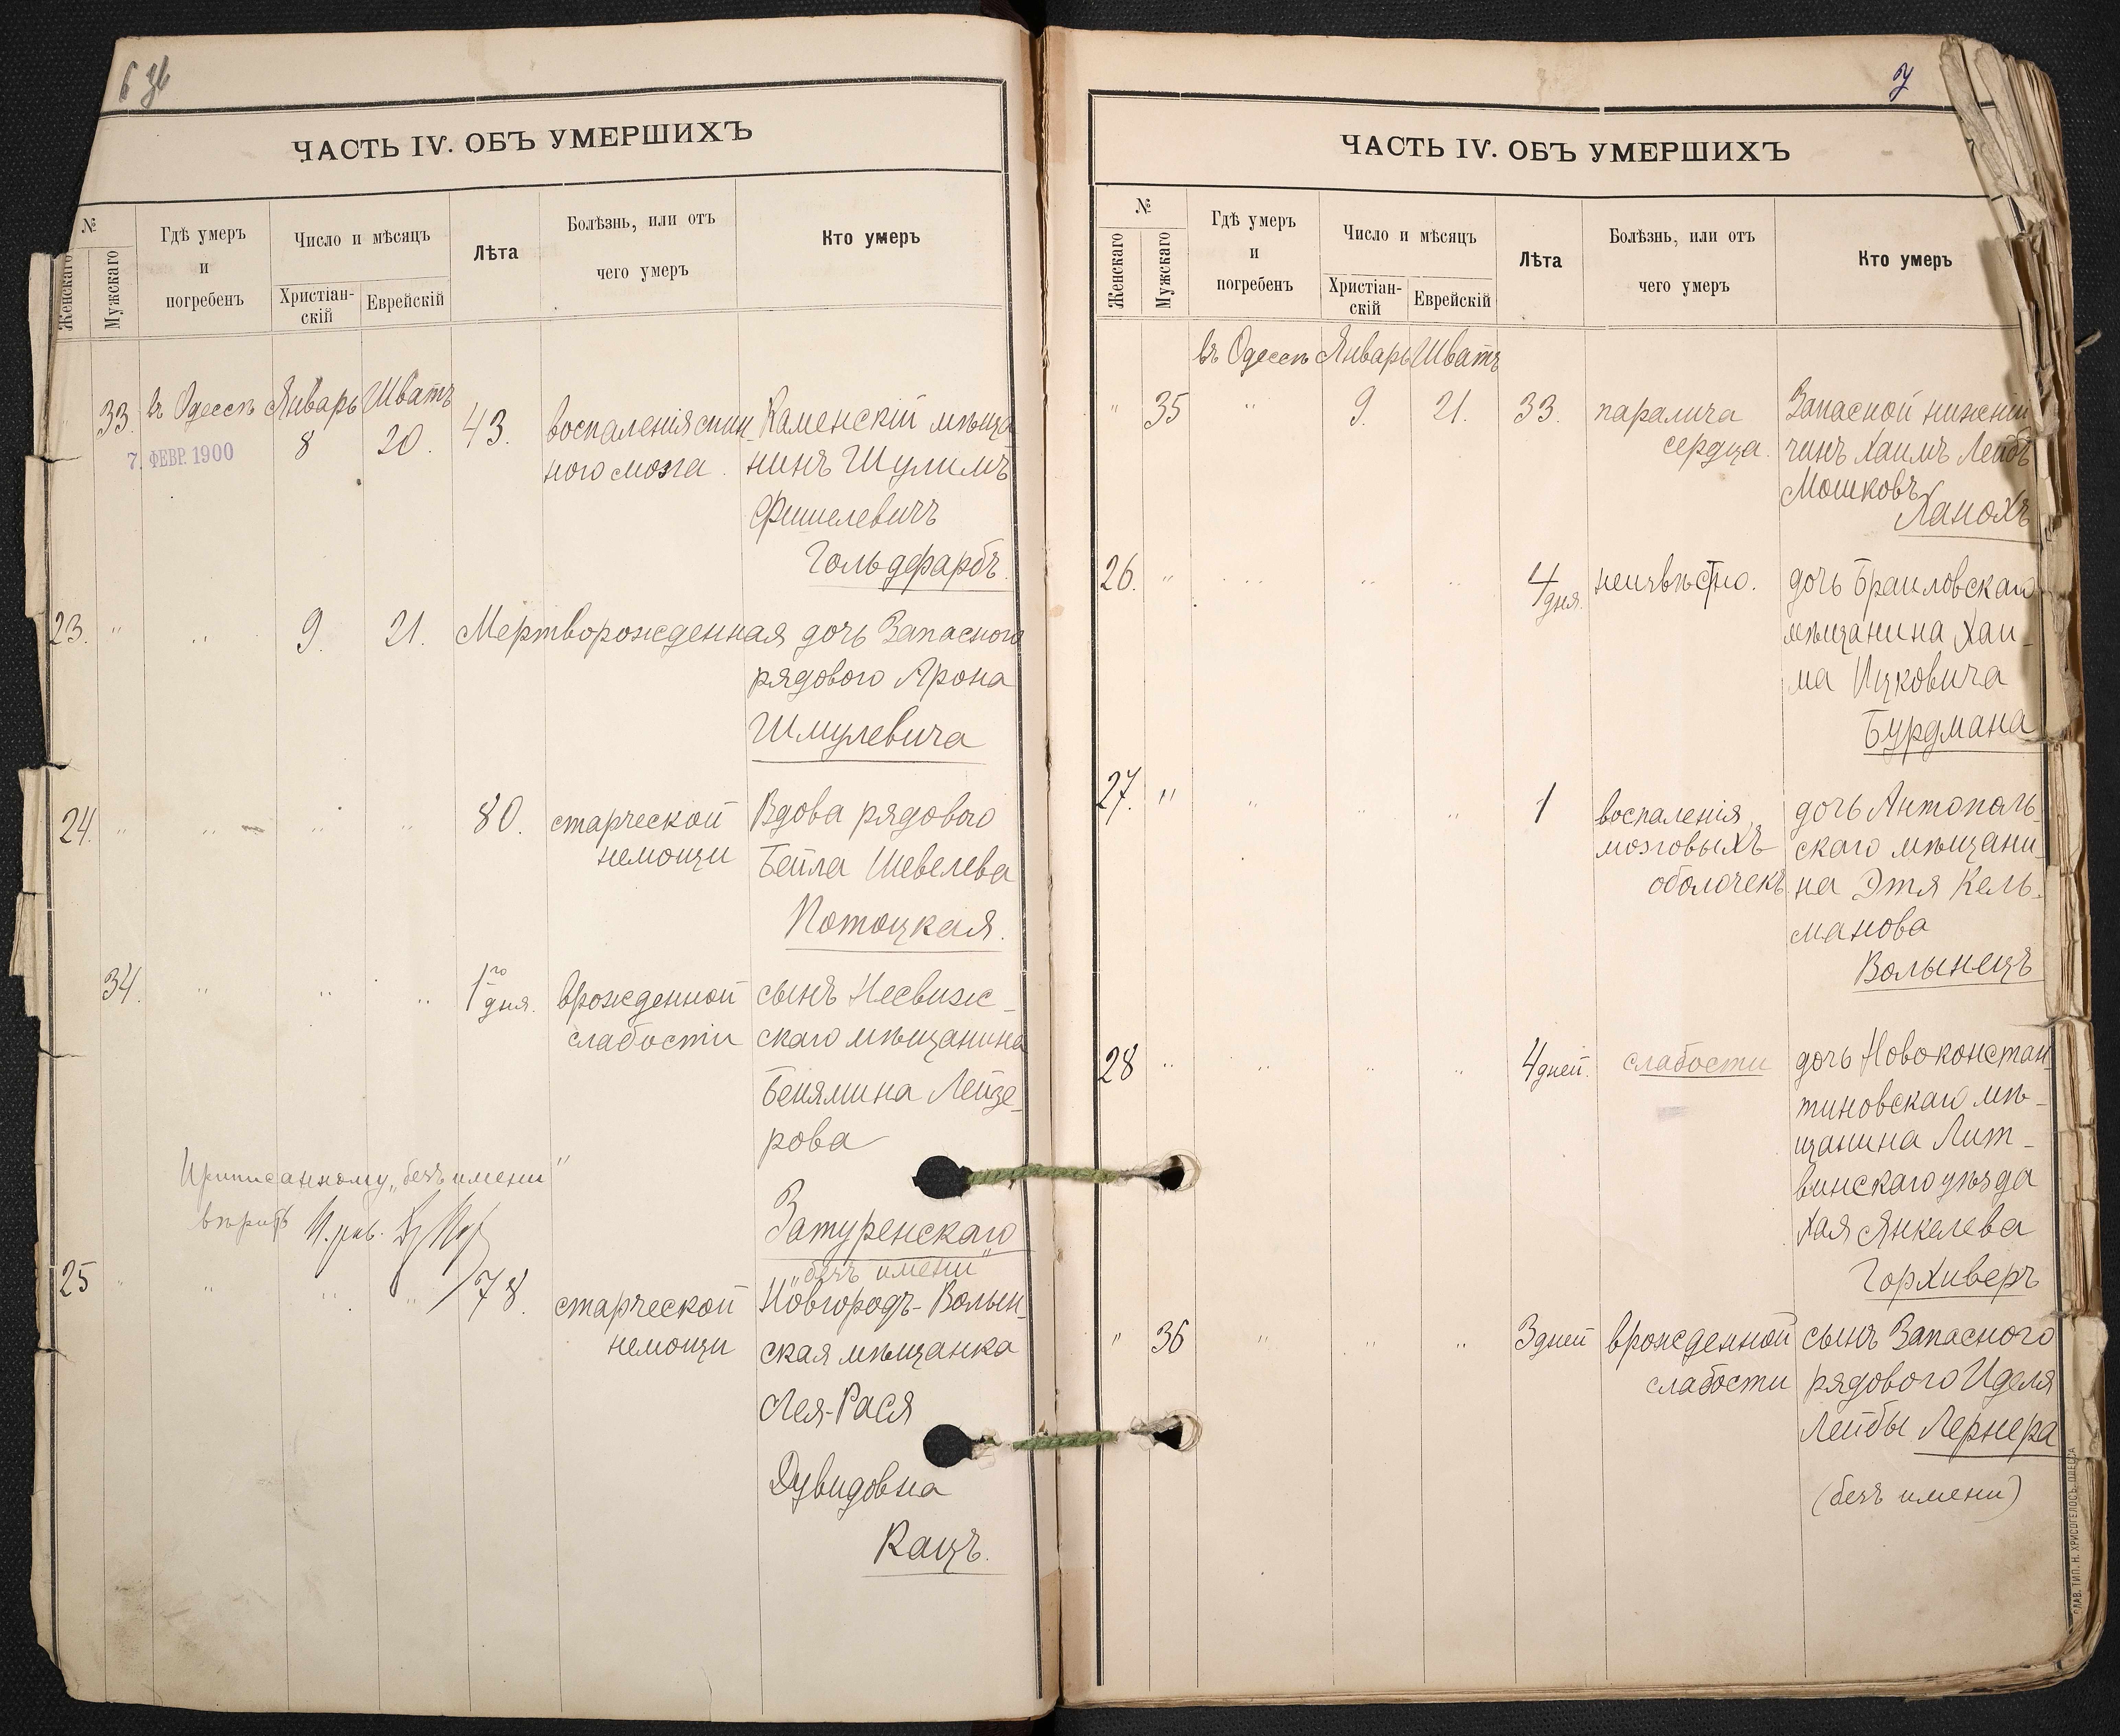 ЧАСТЬ IV. ОБЪ УМЕРШИХЪ
№
Женскаго
Мужскаго
Гдѣ умеръ
и
погребенъ
Число и мѣсяцъ
Христіан-
скій
Еврейскій
Лѣта
Болѣзнь, или отъ
чего умеръ
Кто умеръ
33. въ Одессѣ Январь Шватъ
8 20. 43. воспаленія спин- Каменскій мѣща-
7. ФЕВР. 1900
ного мозга. нинъ Шулимъ
Фишелевичъ
Гольдфарбъ.
23. " " 9. 21. Мертворожденная дочь Запасного
рядового Арона
Шмулевича
24. " " " " 80. старческой Вдова рядового
немощи Бейла Шевелева
Потоцкая.
34. " " " 1го дня. врожденной сынъ Несвиж-
слабости скаго мѣщанина
Бенямина Лейзе-
рова
Приписанному „безъ имени"
вѣрить
Затуренскаго
„безъ имени"
25 " " " " 78. старческой Новгородъ-Волын-
немощи ская мѣщанка
Лея-Рася
Дувидовна
Кацъ.
7
ЧАСТЬ IV. ОБЪ УМЕРШИХЪ
№
Женскаго
Мужскаго
Гдѣ умеръ
и
погребенъ
Число и мѣсяцъ
Христіан-
скій
Еврейскій
Лѣта
Болѣзнь, или отъ
чего умеръ
Кто умеръ
въ Одессѣ Январь Шватъ
" 35 " 9. 21. 33. паралича Запасной нижній
сердца. чинъ Хаимъ Лейбъ
Мошковъ
Ханохъ
26. " " " " 4 дня. неизвѣстно. дочь Браиловскаго
мѣщанина Хаи-
ма Ицковича
Бурдмана
27. " " " " 1 воспаленія дочь Антополь-
мозговыхъ скаго мѣщани-
оболочекъ. на Этя Кель-
манова
Волынецъ
28 " " " " 4 дней. слабости дочь Новоконстан-
тиновскаго мѣ-
щанина Лит-
винскаго уѣзда
Хая Янкелева
Горхиверъ
" 36 " " " 3 дней врожденной сынъ Запасного
слабости рядового Иделя
Лейбы Лернера
(безъ имени)
СЛАВ. ТИП. Н. ХРИСОГЕЛОСЪ, ОДЕССА